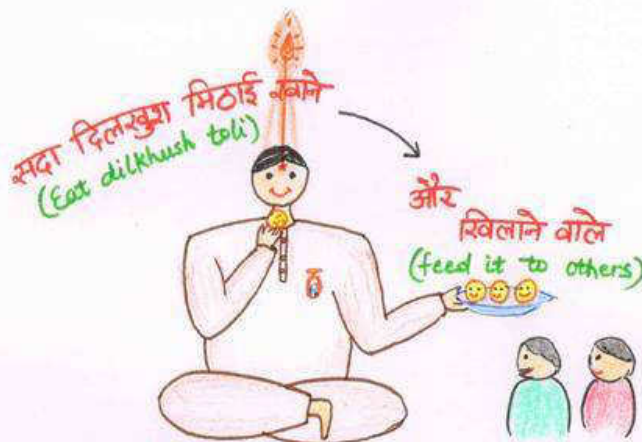 सदा दिलखुश मिठाई खाने
(Eat dilkhush toli)
और
खिलाने वाले
(feed it to others)